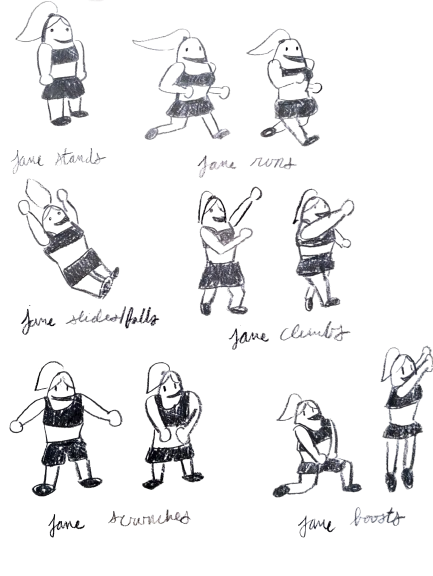 Jane stands
Jane runs
Jane slides/falls
Jane climbs
Jane scrunches
Jane boosts